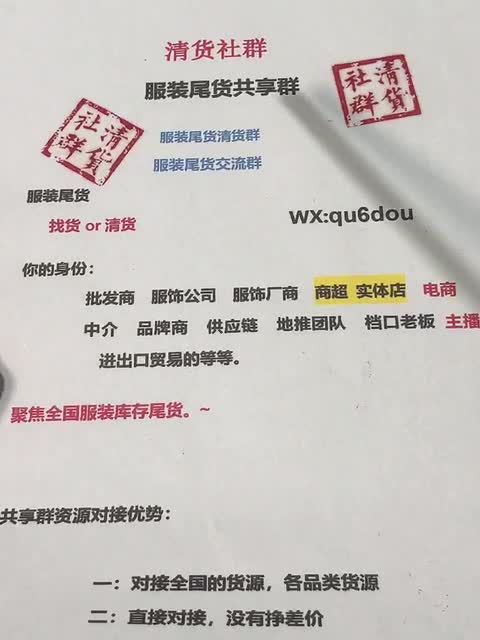 清货社群
服装尾货共享群
清货社群
清货社群
服装尾货清货群
服装尾货交流群
服装尾货
找货 or 清货
WX:qu6dou
你的身份：
批发商 服饰公司 服饰厂商 商超 实体店 电商
中介 品牌商 供应链 地推团队 档口老板 主播
进出口贸易的等等。
聚焦全国服装库存尾货。~
共享群资源对接优势：
一：对接全国的货源，各品类货源
二：直接对接，没有挣差价